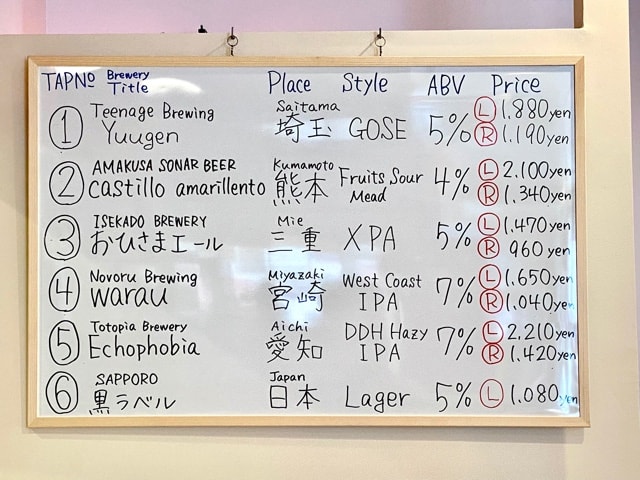 TAPNo Brewery Title Place Style ABV Price
① Teenage Brewing Saitama Ⓛ 1.880yen
Yuugen 埼玉 GOSE 5% Ⓡ 1.190yen
② AMAKUSA SONAR BEER Kumamoto Fruits Sour Ⓛ 2.100yen
Castillo amarillento 熊本 Mead 4% Ⓡ 1.340yen
③ ISEKADO BREWERY Mie Ⓛ 1.470yen
おひさまエール 三重 XPA 5% Ⓡ 960yen
④ Novoru Brewing Miyazaki West Coast Ⓛ 1.650yen
Warau 宮崎 IPA 7% Ⓡ 1.040yen
⑤ Totopia Brewery Aichi DDH Hazy Ⓛ 2.210yen
Echophobia 愛知 IPA 7% Ⓡ 1.420yen
⑥ SAPPORO Japan
黒ラベル 日本 Lager 5% Ⓛ 1.080yen